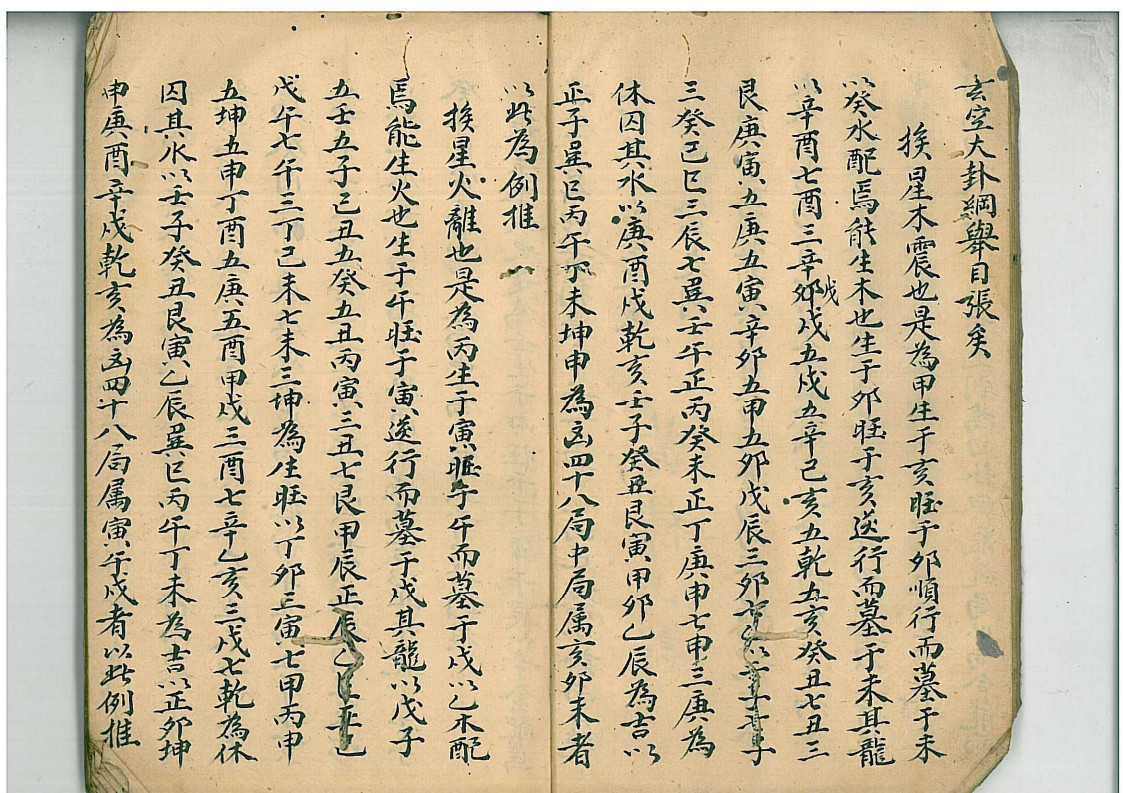 玄空大卦綱舉目張矣
挨星木震也是為甲生于亥旺于卯順行而墓于未
以癸水配焉能生木也生于卯旺于亥送行而墓于未其龍
以辛酉七酉三辛卯戌戌五戌五辛己亥五乾五亥癸丑七丑三
艮庚寅五庚五寅辛卯五甲五卯戊辰三卯
三癸己巳三辰七巽壬午正丙癸未正丁庚申七申三庚為
休囚其水以庚酉戌乾亥壬子癸丑艮寅甲卯乙辰為吉以
正子巽巳丙午丁未坤申為凶四十八局中局属亥卯未者
以此為例推
挨星火離也是為丙生于寅旺于午而墓于戌以乙木配
焉能生火也生于午旺于寅送行而墓于戌其龍以戊子
五壬五子己丑五癸五丑丙寅三丑七艮甲辰正辰乙
戊午七午三丁己未七未三坤為生旺以丁卯三寅七甲丙申
五坤五申丁酉五庚五酉甲戌三酉七辛乙亥三戌七乾為休
囚其水以壬子癸丑艮寅乙辰巽巳丙午丁未為吉以正卯坤
申庚酉辛戌乾亥為凶四十八局属寅午戌者以此例推